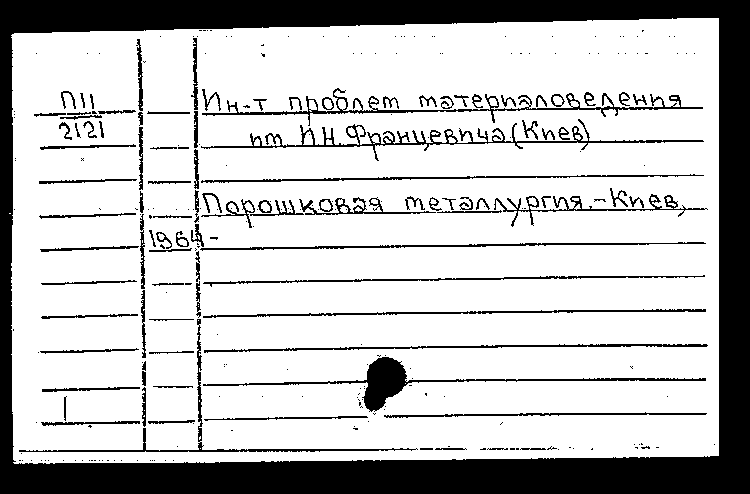 П11
2121
Ин-т проблем материаловедения
им И.Н. Францевича (Киев)
Порошковая металлургия. - Киев,
1964 -